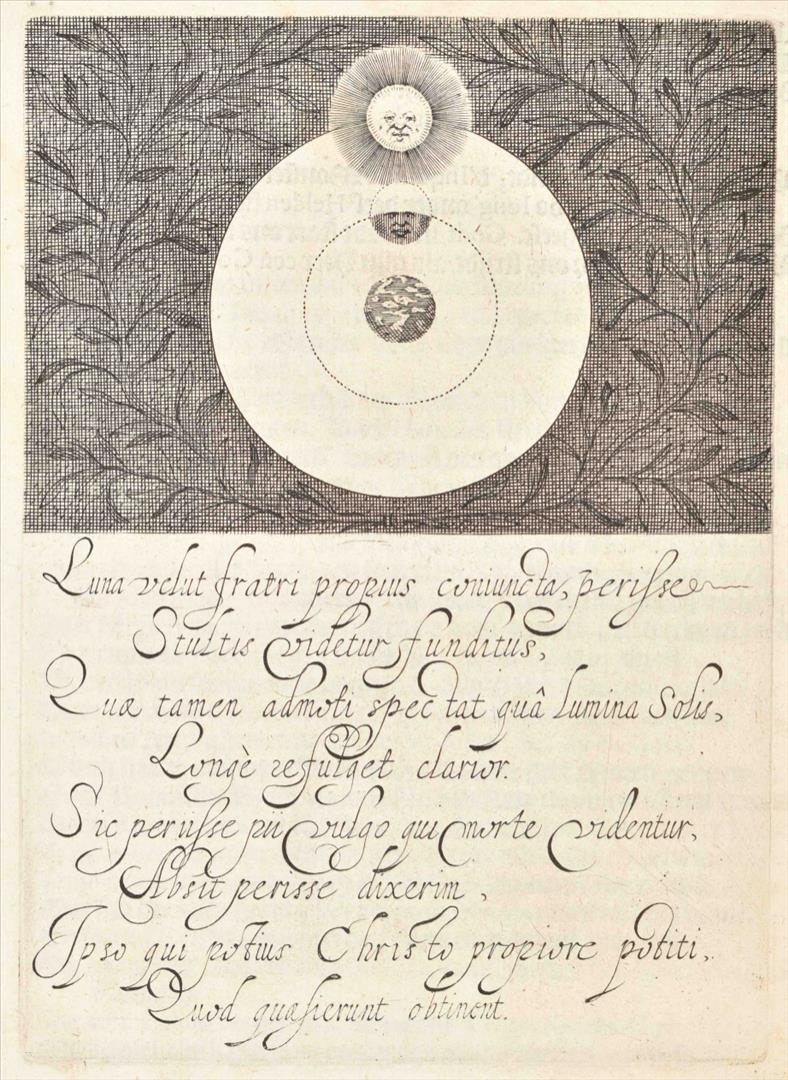 Luna velut fratri propius coniuncta, perisse
Stultis videtur funditus,
Quæ tamen admoti spectat quâ lumina Solis,
Longè refulget clarior.
Sic periisse pii vulgo qui morte videntur,
Absit perisse dixerim,
Ipso qui potius Christo propiore potiti,
Quod quæsierunt obtinent.